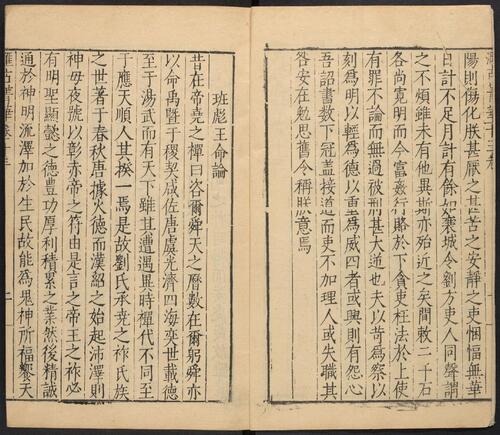 陽則傷化朕甚厭之甚苦之安靜之吏悃愊無華
日計不足月計有餘如襄城令劉方吏人同聲謂
之不煩雖未有他異斯亦殆近之矣間敕二千石
各尚寬明而今富姦行賂於下貪吏枉法於上使
有罪不論而無過被刑甚大逆也夫以苛為察以
刻為明以輕為德以重為威四者或興則有怨心
吾詔書數下冠蓋接道而吏不加理人或失職其
咎安在勉思舊令稱朕意焉
班彪王命論
昔在帝堯之禪曰咨爾舜天之曆數在爾躬舜亦
以命禹暨于稷契咸佐唐虞光濟四海奕世載德
至于湯武而有天下雖其遭遇異時禪代不同至
于應天順人其揆一焉是故劉氏承堯之祚氏族
之世著于春秋唐據火德而漢紹之始起沛澤則
神母夜號以彰赤帝之符由是言之帝王之祚必
有明聖顯懿之德豐功厚利積累之業然後精誠
通於神明流澤加於生民故能為鬼神所福饗天